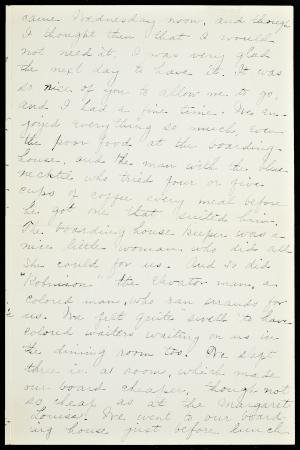 came Wednesday noon, and though
I thought then that I would
not need it, I was very glad
the next day to have it. It was
so nice of you to allow me to go,
and I had a fine time. We en-
joyed everything so much, even
the poor food at the boarding
house, and the man with the blue
necktie who tried four or five
cups of coffee every meal before
he got one that suited him.
The boarding house keeper was a
nice little woman who did all
she could for us. And so did
"Robinson" the elevator man, a
colored man, who ran errands for
us. We felt quite swell to have
colored waiters waiting on us in
the dining room too. We slept
three in a room, which made
our board cheaper, though not
so cheap as at the Margaret
Louise. We went to our board-
ing house just before lunch